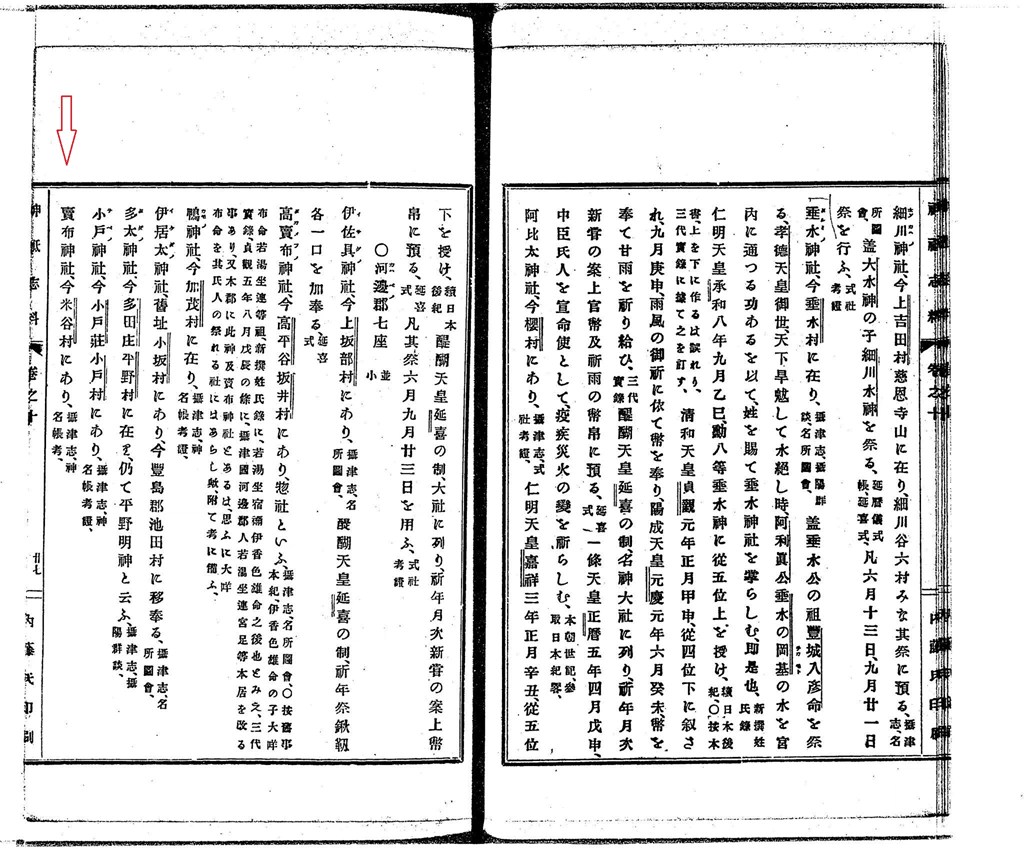 細川神社、今上吉田村慈恩寺山に在り、細川谷六村みな其祭に預る、攝津志、名
所圖會、盖大水神の子細川水神を祭る、延曆儀式帳、延喜式、凡六月十三日、九月廿一日
祭を行ふ、式社考證
垂水神社、今垂水村に在り、攝津志、攝陽群談、名所圖會、盖垂水公の祖豐城入彦命を祭
る、孝德天皇御世、天下旱魃して水絕し時、阿利眞公垂水の岡基の水を宮
內に通つる功あるを以て、姓を賜て垂水神社を掌らしむ、即是也、新撰姓氏錄
仁明天皇承和八年九月乙巳、勳八等垂水神に從五位上を授け、續日本後紀〇按本
書、上を下に作るは誤れり、三代實錄に據て之を訂す、清和天皇貞觀元年正月甲申、從四位下に叙さ
れ、九月庚申、雨風の御祈に依て幣を奉り、陽成天皇元慶元年六月癸未、幣を
奉て甘雨を祈り給ひ、三代實錄醍醐天皇延喜の制、名神大社に列り、祈年月次
新甞の案上官幣及祈雨の幣帛に預る、延喜式一條天皇正曆五年四月戊申、
中臣氏人を宣命使として、疫疾災火の變を祈らしむ、本朝世紀、參取日本紀畧、
阿比太神社、今櫻村にあり、攝津志、式社考證、仁明天皇嘉祥三年正月辛丑、從五位
下を授け、續日本後紀醍醐天皇延喜の制、大社に列り、祈年月次新甞の案上幣
帛に預る、延喜式凡其祭六月九月廿三日を用ふ、式社考證
〇河邊郡七座並小
伊佐具神社、今上坂部村にあり、攝津志、名所圖會、醍醐天皇延喜の制、祈年祭鍬靱
各一口を加奉る、延喜式
高賣布神社、今高平谷坂井村にあり、惣社といふ、攝津志、名所圖會〇按舊事本紀、伊香色雄命の子大咩
布命若湯坐連等祖、新撰姓氏錄に、若湯坐宿禰伊香色雄命之後也とみえ、三代
實錄、貞觀五年八月戊辰の條に、攝津國河邊郡人若湯坐連宮足等本居を改る
事あり、又本郡に此神及賣布神社とあるは、思ふに大咩
布命を其氏人の祭れる社にはあらじ歟、附て考に備ふ、
鴨神社、今加茂村に在り、攝津志、神名帳考證、
伊居太神社、舊址小坂村にあり、今豐島郡池田村に移奉る、攝津志、名所圖會、
多太神社、今多田庄平野村に在を、仍て平野明神と云ふ、攝津志、攝陽群談、
小戸神社、今小戸莊小戸村にあり、攝津志、神名帳考證、
賣布神社、今米谷村にあり、攝津志、神名帳考、
神祇志料
卷之十
廿七
內藤氏印刷